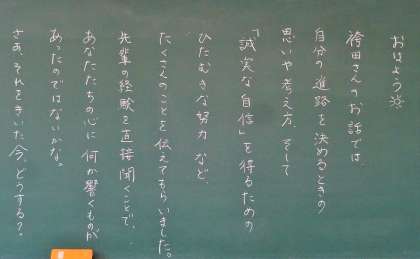 おはよう☼
袴田さんのお話では、
自分の進路を決めるときの
思いや考え方、そして
「誠実な自信」を得るための
ひたむきな努力など、
たくさんのことを伝えてもらいました。
先輩の経験を直接聞くことで、
あなたたちの心に何か響くものが
あったのではないかな。
さあ、それをきいた今、どうする？